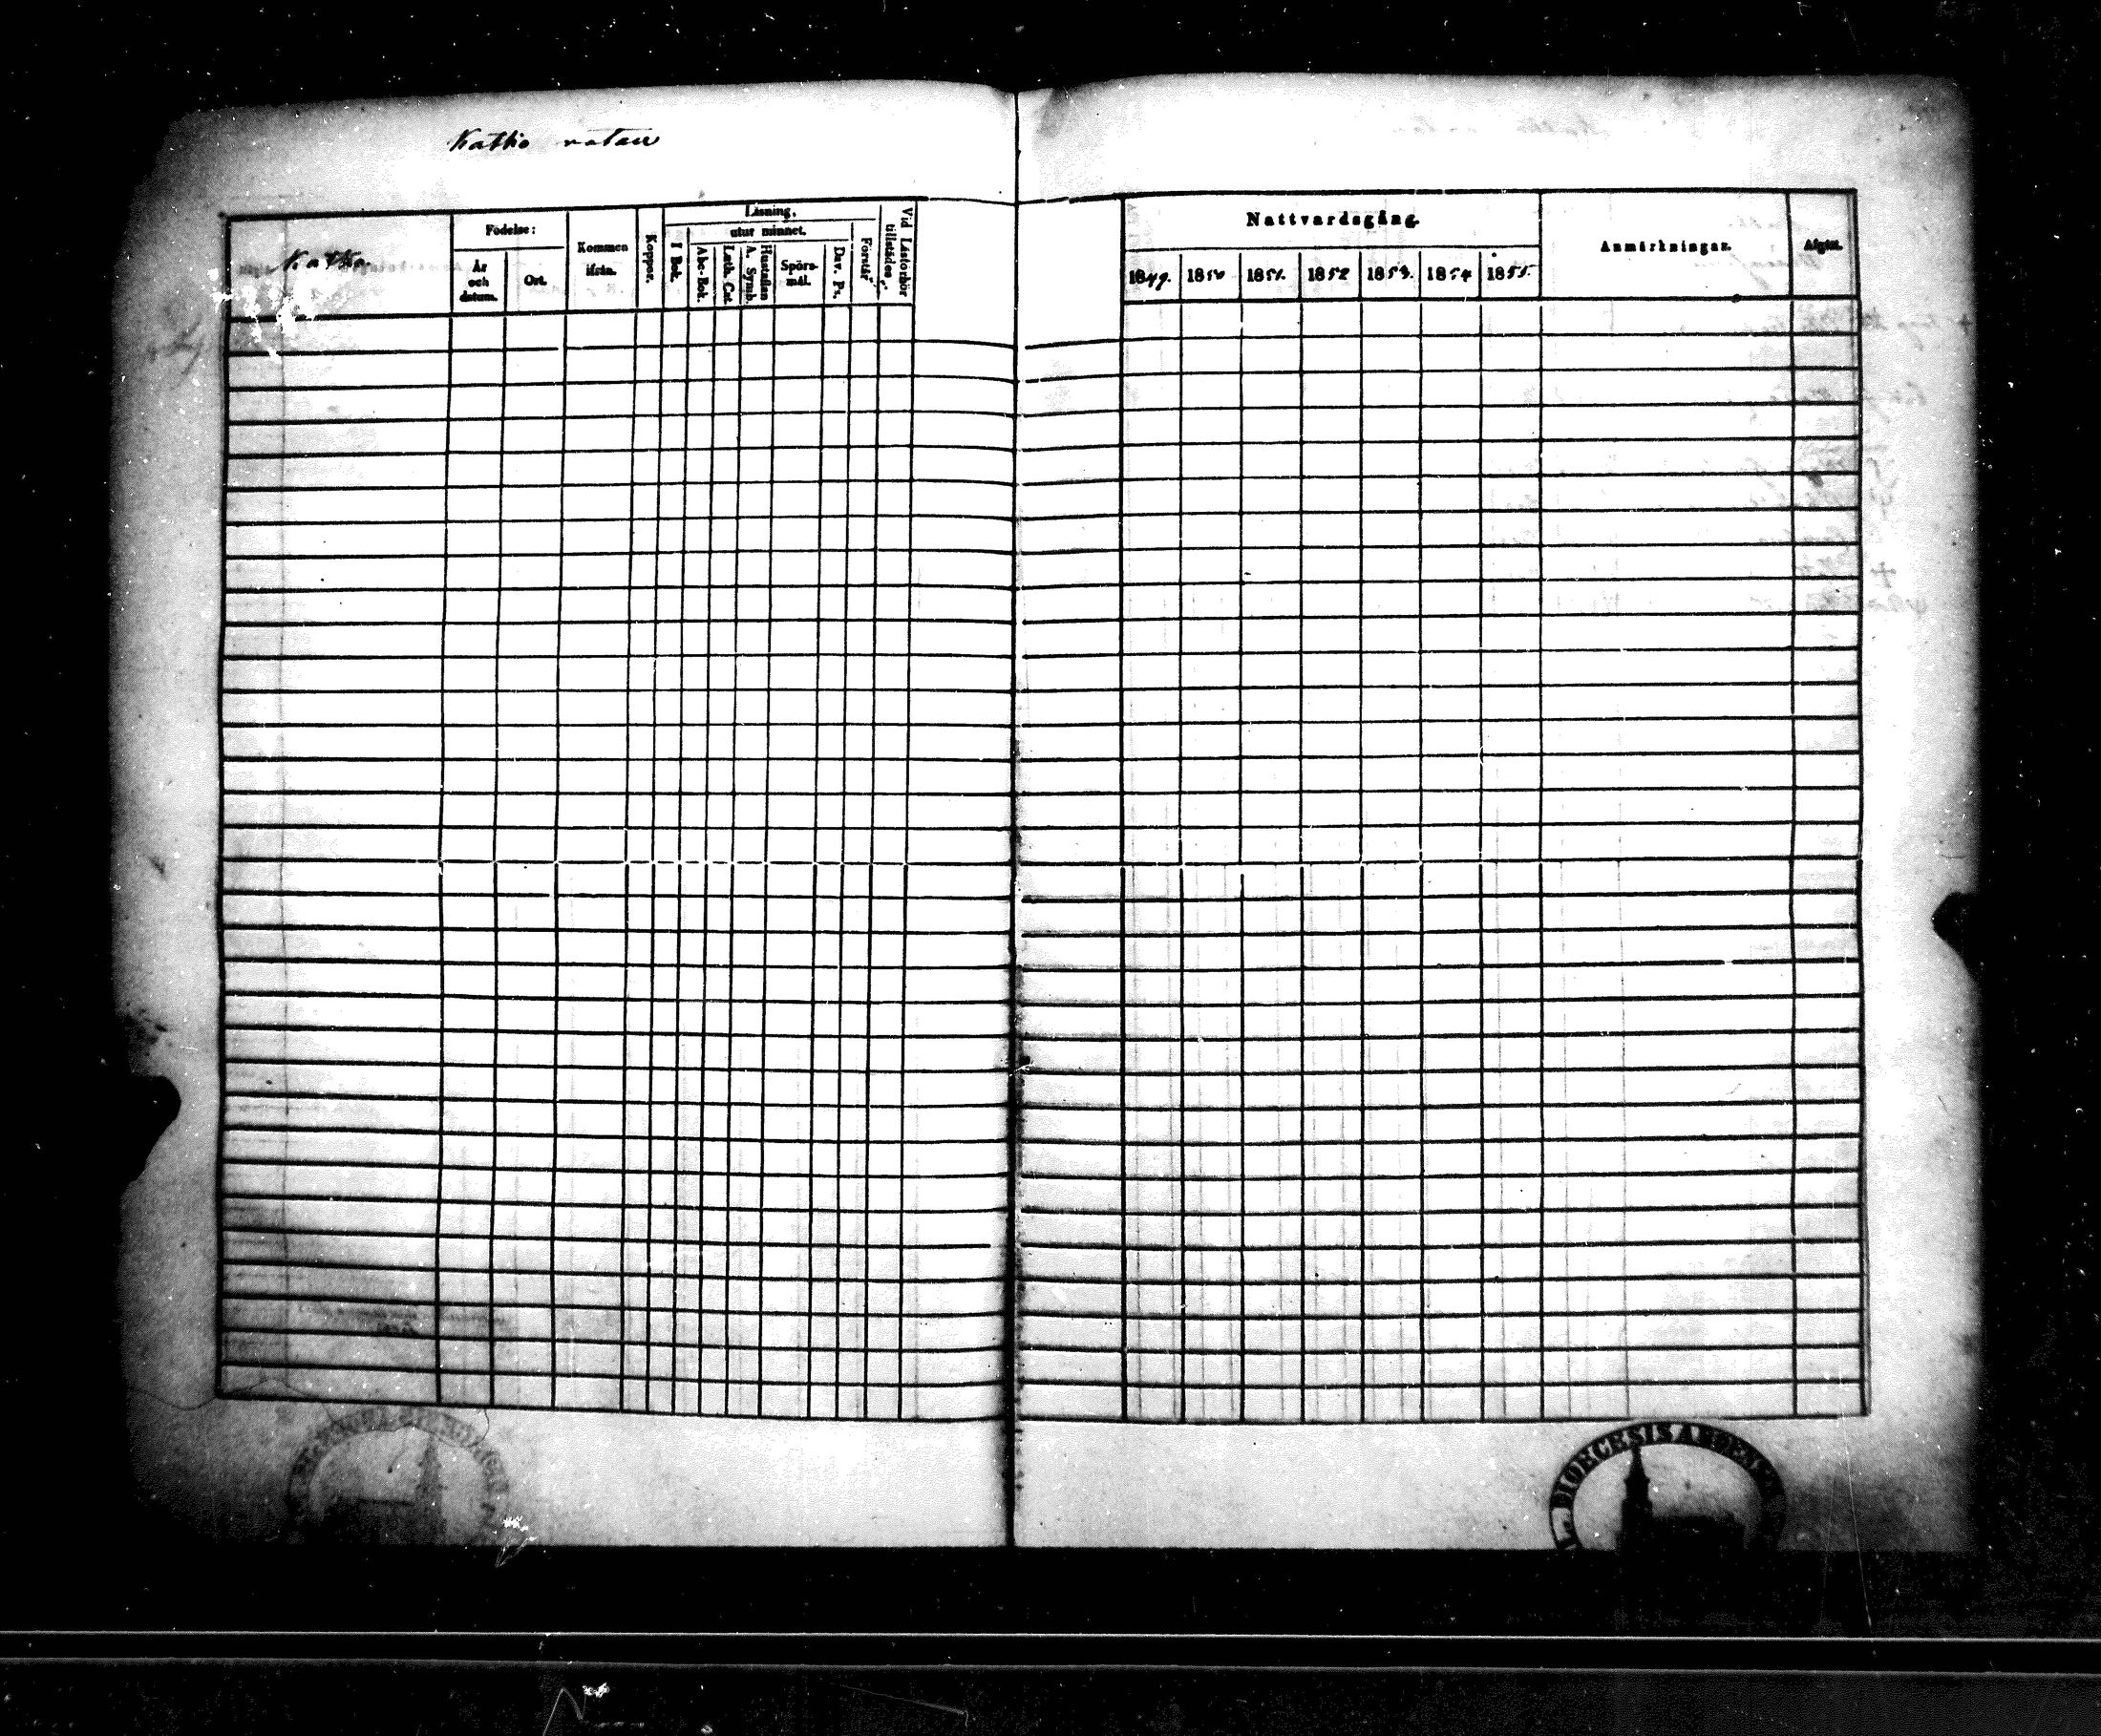 Katko rotan
Katko.
Födelse:
År och datum.
Ort.
Kommen ifrån.
Koppor.
Läsning,
I Bok.
utur minnet.
Abc-Bok.
Luth. Cat.
Hustaflan A. Symb.
Spörsmål.
Dav. Ps.
Förstår
Vid Läsförhör tillstädes
Nattvardsgång.
1849. 1850 1851. 1852 1853. 1854 1855.
Anmärkningar.
Afgått.
DIOECESIS ABOENSIS